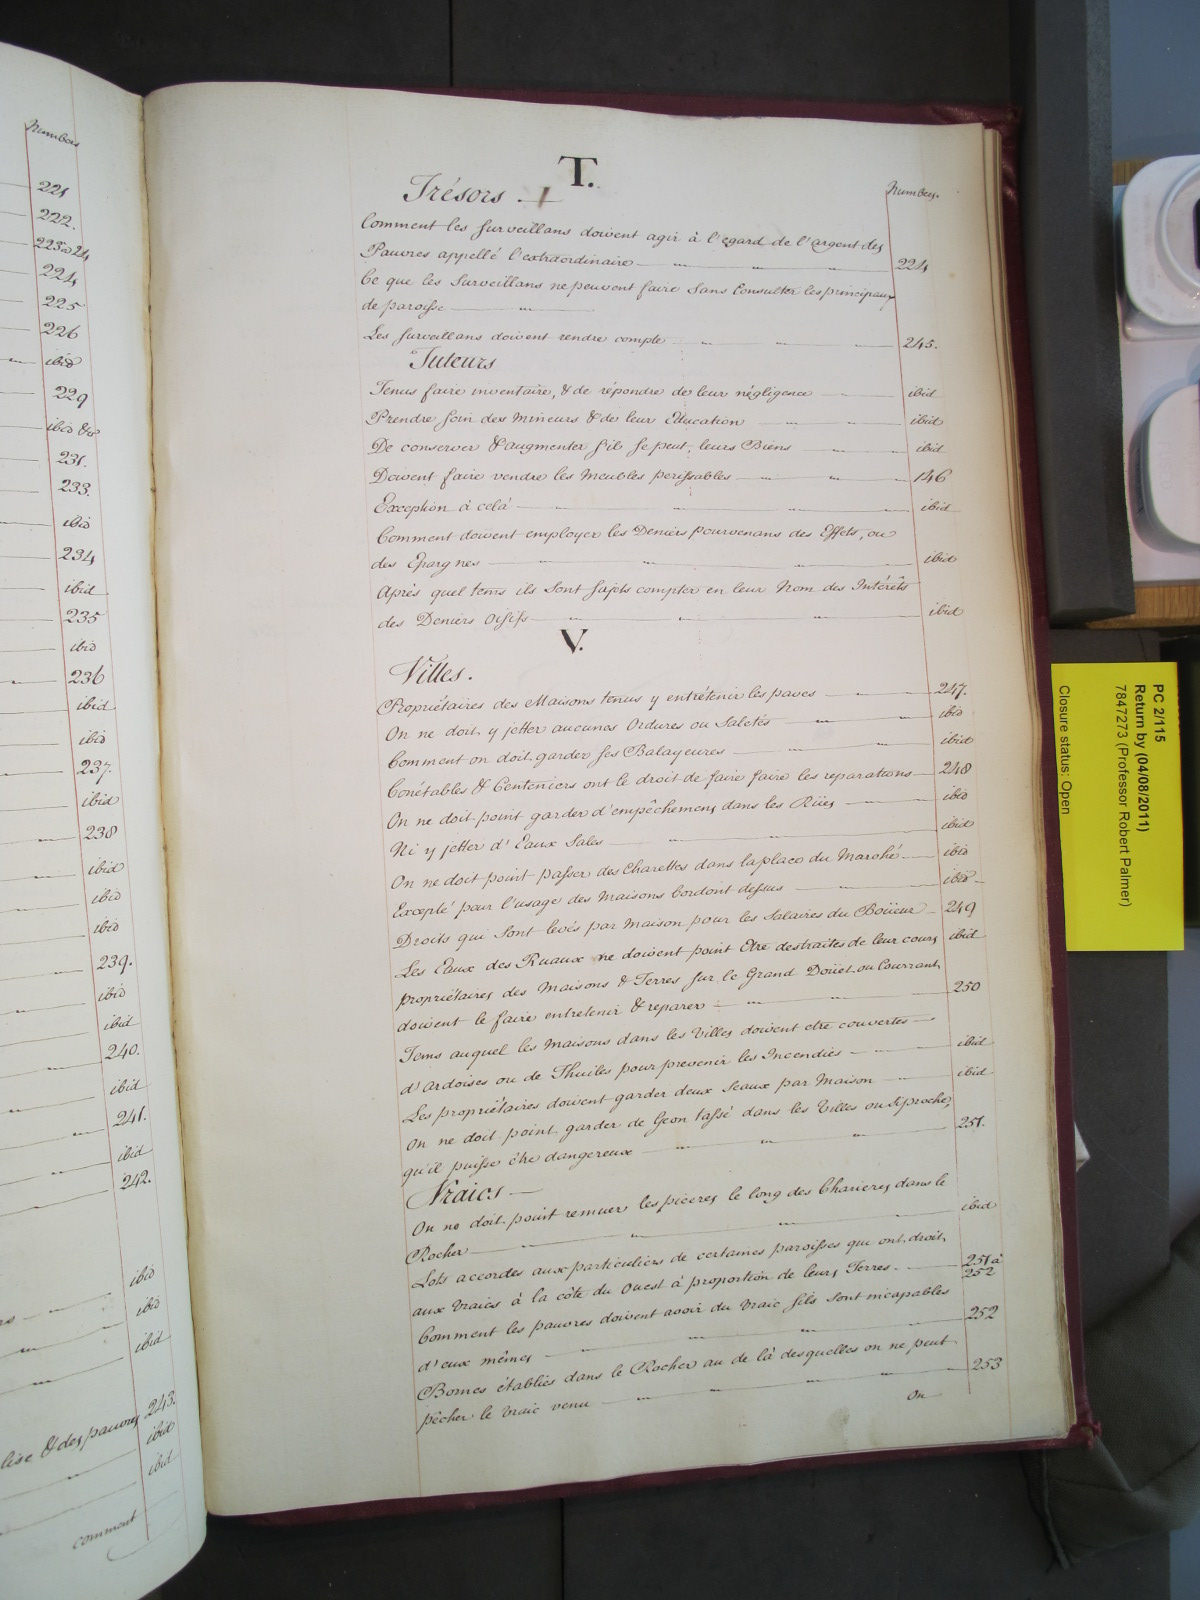 Numbers
221
222.
223 à 24
224
225
226
ibid
229
ibid &c
231.
233.
ibid
234
ibid
235
ibid
236
ibid
ibid
237.
ibid
238
ibid
ibid
ibid
239.
ibid
ibid
240.
ibid
241.
ibid
242.
ibid
ibid
ibid
lise & des pauvres 243.
ibid
ibid
comment
T.
Trésors. Numbers.
Comment les Surveillans doivent agir à l'egard de l'argent des
Pauvres appellé l'extraordinaire 224
Ce que les Surveillans ne peuvent faire Sans Consulter les principaux
de paroisse
Les Surveillans doivent rendre compte 245.
Tuteurs
Tenus faire inventaire, & de répondre de leur négligence ibid
Prendre Soin des Mineurs & de leur Education ibid
De conserver & augmenter S'il Se peut, leurs Biens ibid
Doivent faire vendre les Meubles perissables 146
Exception à célà ibid
Comment doivent employer les Deniers pourvenans des Effets, ou
des Epargnes ibid
Après quel tems ils Sont Sujets compter en leur Nom des Intérêts
des Deniers Oisifs ibid
V.
Villes.
Propriétaires des Maisons tenus y entrétenir les paves 247.
On ne doit y jetter aucunes Ordures ou Saletés ibid
Comment on doit garder Ses Balayeures ibid
Conétables & Centeniers ont le droit de faire faire les reparations 248
On ne doit point garder d'empêchemens dans les Rües ibid
Ni y jetter d'Eaux Sales ibid
On ne doit point passer des Charettes dans la place du Marché ibid
Excepté pour l'usage des Maisons bordant dessus ibid
Droits qui Sont levés par Maison pour les Salaires du Boüeur 249
Les Eaux des Ruaux ne doivent point Etre destraites de leur cours ibid
propriétaires des Maisons & Terres Sur le Grand Doüet ou Courrant
doivent le faire entretenir & reparer 250
Tems auquel les Maisons dans les Villes doivent etre couvertes
d'ardoises ou de Thuiles pour prevenir les Incendies ibid
Les propriétaires doivent garder deux Seaux par Maison ibid
On ne doit point garder de Geon tassé dans les Villes ou Si proche,
qu'il puisse être dangereux 251.
Vraics
On ne doit point remuer les pieces le long des Charieres dans le
Rocher ibid
Lots accordes aux particuliers de certaines paroisses qui ont droit
aux Vraics à la côte du Ouest à proportion de leurs Terres. 251 à
252
Comment les pauvres doivent avoir du Vraic S'ils Sont incapables
d'eux mêmes 252
Bornes établies dans le Rocher au de là desquelles on ne peut
pêcher le Vraic venu 253
On
PC 2/115
Return by (04/08/2011)
7847273 (Professor Robert Palmer)
Closure status: Open